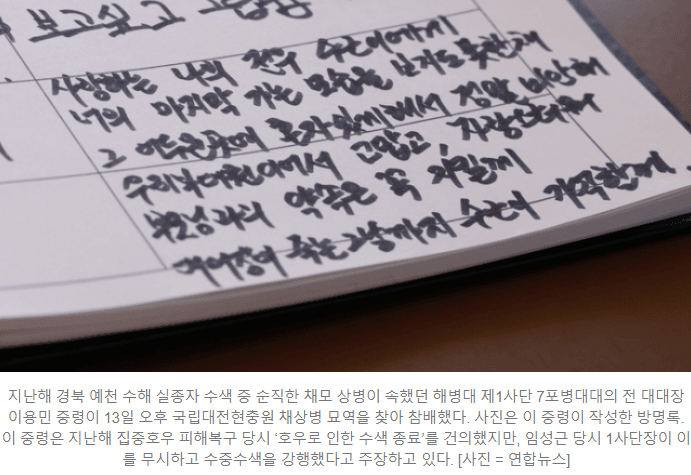 보고싶고 그립습
사랑하는 나의 전우 수근이에게
너의 마지막 가는 모습을 보지도 못한채
그 어두운곳에 혼자있게해서 정말 미안해
우리부대원이어서 고맙고, 자랑스러워
부모님과의 약속은 꼭 지킬게
대대장이 죽는 그날까지 수근이 기억할게.
지난해 경북 예천 수해 실종자 수색 중 순직한 채모 상병이 속했던 해병대 제1사단 7포병대대의 전 대대장
이용민 중령이 13일 오후 국립대전현충원 채상병 묘역을 찾아 참배했다. 사진은 이 중령이 작성한 방명록.
이 중령은 지난해 집중호우 피해복구 당시 '호우로 인한 수색 종료'를 건의했지만, 임성근 당시 1사단장이 이
를 무시하고 수중수색을 강행했다고 주장하고 있다. [사진 = 연합뉴스]